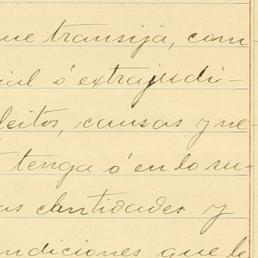 que transija, com-
cial ó extrajudi-
leitos, causas y ne-
tenga ó en lo su-
as cantidades y
ndiciones que le